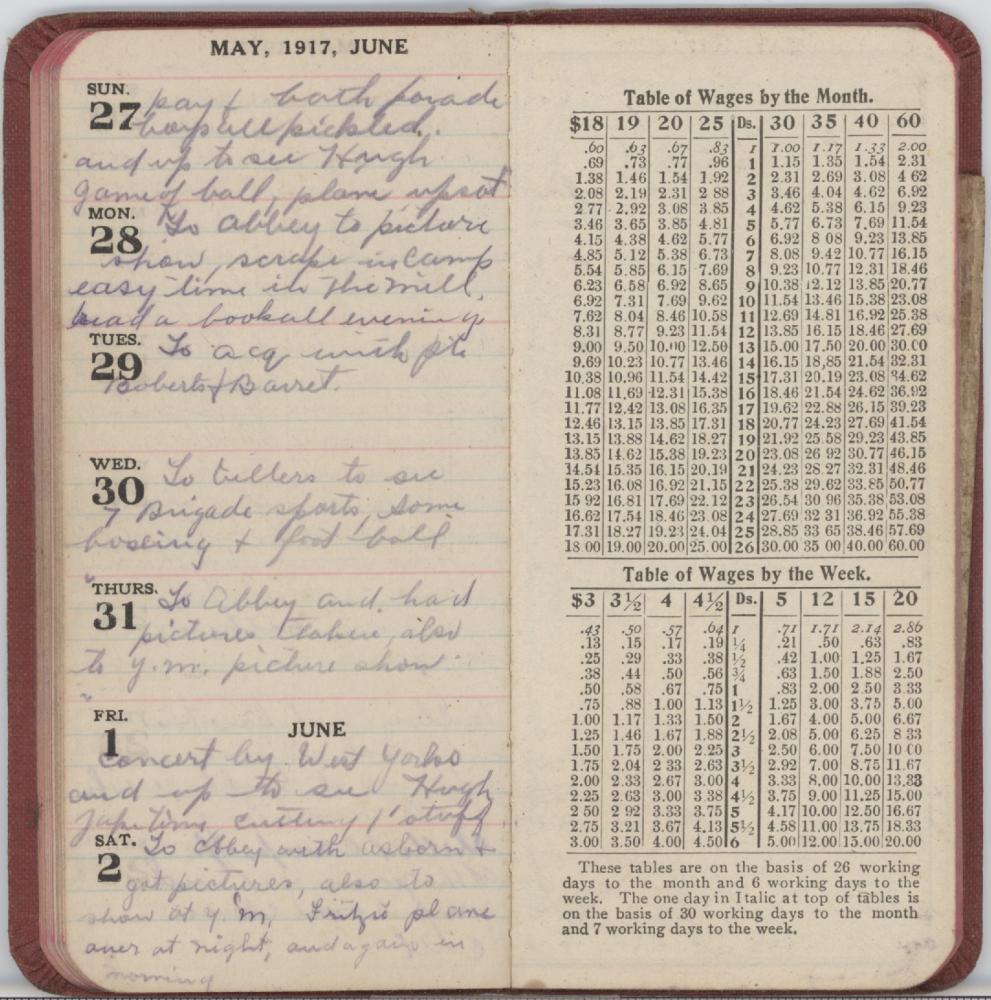 MAY, 1917, JUNE
SUN.
27 pay & bath parade
boys all pickled,
and up to see Hugh
game of ball, plane upset
MON.
28 To abbey to picture
show, scrape in camp
easy time in the mill,
read a book all evening
TUES.
29 To acq with pte
Roberts & Barret.
WED.
30 To billers to see
7 Brigade sports, some
boxing & foot ball
THURS.
31 To Abbey and had
pictures taken, also
to y.m. picture show
FRI.
1 JUNE
Concert by West Yorks
and up to see Hugh
time cutting stuff
SAT.
2 To Abbey with asborn &
got pictures, also to
show at y.m, Fritzie plane
over at night, and again in
morning
Table of Wages by the Month.
$18 19 20 25 Ds. 30 35 40 60
.60 .63 .67 .83 1 1.00 1.17 1.33 2.00
.69 .73 .77 .96 1 1.15 1.35 1.54 2.31
1.38 1.46 1.54 1.92 2 2.31 2.69 3.08 4 62
2.08 2.19 2.31 2 88 3 3.46 4.04 4.62 6.92
2.77 2.92 3.08 3.85 4 4.62 5.38 6.15 9.23
3.46 3.65 3.85 4.81 5 5.77 6.73 7.69 11.54
4.15 4.38 4.62 5.77 6 6.92 8 08 9.23 13.85
4.85 5.12 5.38 6.73 7 8.08 9.42 10.77 16.15
5.54 5.85 6.15 7.69 8 9.23 10.77 12.31 18.46
6.23 6.58 6.92 8.65 9 10.38 12.12 13.85 20.77
6.92 7.31 7.69 9.62 10 11.54 13.46 15.38 23.08
7.62 8.04 8.46 10.58 11 12.69 14.81 16.92 25.38
8.31 8.77 9.23 11.54 12 13.85 16.15 18.46 27.69
9.00 9.50 10.00 12.50 13 15.00 17.50 20.00 30.00
9.69 10.23 10.77 13.46 14 16.15 18,85 21.54 32.31
10.38 10.96 11.54 14.42 15 17.31 20.19 23.08 34.62
11.08 11,69 12.31 15.38 16 18.46 21.54 24.62 36.92
11.77 12.42 13.08 16.35 17 19.62 22.88 26,15 39.23
12.46 13.15 13.85 17.31 18 20.77 24.23 27.69 41.54
13.15 13.88 14.62 18.27 19 21.92 25.58 29.23 43.85
13.85 14.62 15.38 19.23 20 23.08 26 92 30.77 46.15
14.54 15.35 16.15 20.19 21 24.23 28.27 32.31 48.46
15.23 16.08 16.92 21.15 22 25.38 29.62 33.85 50.77
15 92 16.81 17.69 22.12 23 26.54 30 96 35.38 53.08
16.62 17.54 18.46 23.08 24 27.69 32 31 36.92 55.38
17.31 18.27 19.23 24.04 25 28.85 33 65 38.46 57.69
18 00 19.00 20.00 25.00 26 30.00 35 00 40.00 60.00
Table of Wages by the Week.
$3 3½ 4 4½ Ds. 5 12 15 20
.43 .50 .57 .64 1 .71 1.71 2.14 2.86
.13 .15 .17 .19 ¼ .21 .50 .63 .83
.25 .29 .33 .38 ½ .42 1.00 1.25 1.67
.38 .44 .50 .56 ¾ .63 1.50 1.88 2.50
.50 .58 .67 .75 1 .83 2.00 2.50 3.33
.75 .88 1.00 1.13 1½ 1.25 3.00 3.75 5.00
1.00 1.17 1.33 1.50 2 1.67 4.00 5.00 6.67
1.25 1.46 1.67 1.88 2½ 2.08 5.00 6.25 8 33
1.50 1.75 2.00 2.25 3 2.50 6.00 7.50 10 00
1.75 2.04 2 33 2.63 3½ 2.92 7.00 8.75 11.67
2.00 2.33 2.67 3.00 4 3.33 8,00 10.00 13.33
2.25 2.63 3.00 3.38 4½ 3.75 9.00 11.25 15.00
2 50 2 92 3.33 3.75 5 4.17 10.00 12.50 16.67
2.75 3.21 3.67 4.13 5½ 4.58 11.00 13.75 18.33
3.00 3.50 4.00 4.50 6 5.00 12.00 15.00 20.00
These tables are on the basis of 26 working
days to the month and 6 working days to the
week. The one day in Italic at top of tables is
on the basis of 30 working days to the month
and 7 working days to the week.